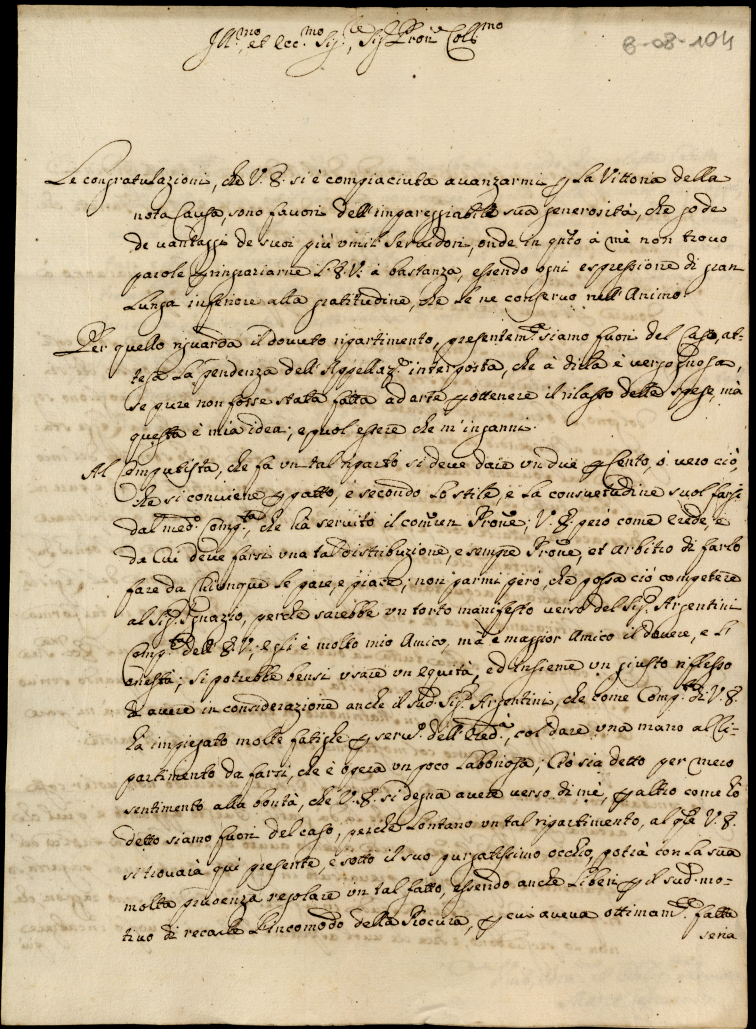 Ill.mo et ecc.mo Sig.re, Sig.r Pron.e Coll.mo
8-08-104
Le congratulazioni, che V. E. si è compiaciuta avanzarmi p La Vittoria della
nota Causa, sono favori dell'impareggiabile sua generosità, che gode
de vantaggi de suoi più umil.i servidori, onde in qnto à mè non trovo
parole p ringraziarne L'E. V. à bastanza, essendo ogni espressione di gran
Lunga inferiore alla gratitudine, che Le ne conservo nell'Animo.
Per quello riguarda il dovuto ripartimento, presentem.te siamo fuori del Caso, at-
tesa La pendenza dell'Appellaz.e interposta, che à dirla è vergognosa,
se pure non fosse stata fatta ad arte p ottenere il rilasso delle spese, mà
questa è mia idea; e puol essere che m'inganni.
Al Computista, che fà un tal riparto si deve dare un due p Cento, ò vero ciò,
che si conviene p patto, e secondo Lo stile, e La consuetudine suol farsi
dal med.o Comp.ta, che hà servito il comun Prone; V. E. però come erede, e
da Cui deve farsi una tal distribuzione, e sempre Prone, et arbitro di farlo
fare da Chiunque Le pare, e piace; non parmi però, che possa ciò competere
al Sig.r Ignazio, perche sarebbe un torto manifesto verso del Sig.r Argentini
Comp.ta dell'E. V.; egli è molto mio Amico, mà è maggior Amico il dovere, e L'
onestà; si potrebbe bensi usare un equità, ed insieme un giusto riflesso
di avere in considerazione anche il sud.o Sig.r Argentini, che come Comp.ta di V. E.
hà impiegato molte fatighe p serv.o dell'Ered.tà, col dare una mano al Ri-
partimento da farsi, che è opera un poco Laboriosa; Ciò sia detto per mero
sentimento alla bontà, che V. E. si degna avere verso di mè, p altro come hò
detto siamo fuori del caso, perche Lontano un tal ripartimento, al qle V. E.
si trovarà quì presente, e sotto il suo purgatissimo occhio, potrà con La sua
molta prudenza regolare un tal fatto, essendo anche Liberi p il sud.o mo-
tivo di recarle L'incomodo della Procura, p cui aveva ottimam.te fatta
seria